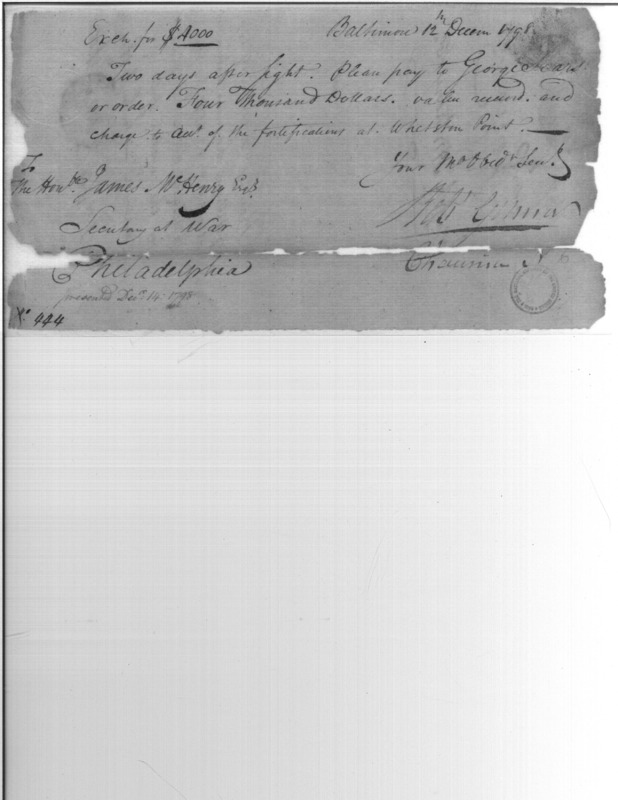 Exch. for $4000 Baltimore 12th Decem 1798.
Two days after sight. Please pay to George Sears
or order. Four Thousand Dollars. value received. and
charge to acct. of the fortifications at Whetston Point.
To Your Mo Obedt Servt
The Honble. James McHenry Esqr.
Secretary at War
Philadelphia Chairman
presented Decr. 14. 1798
No. 444